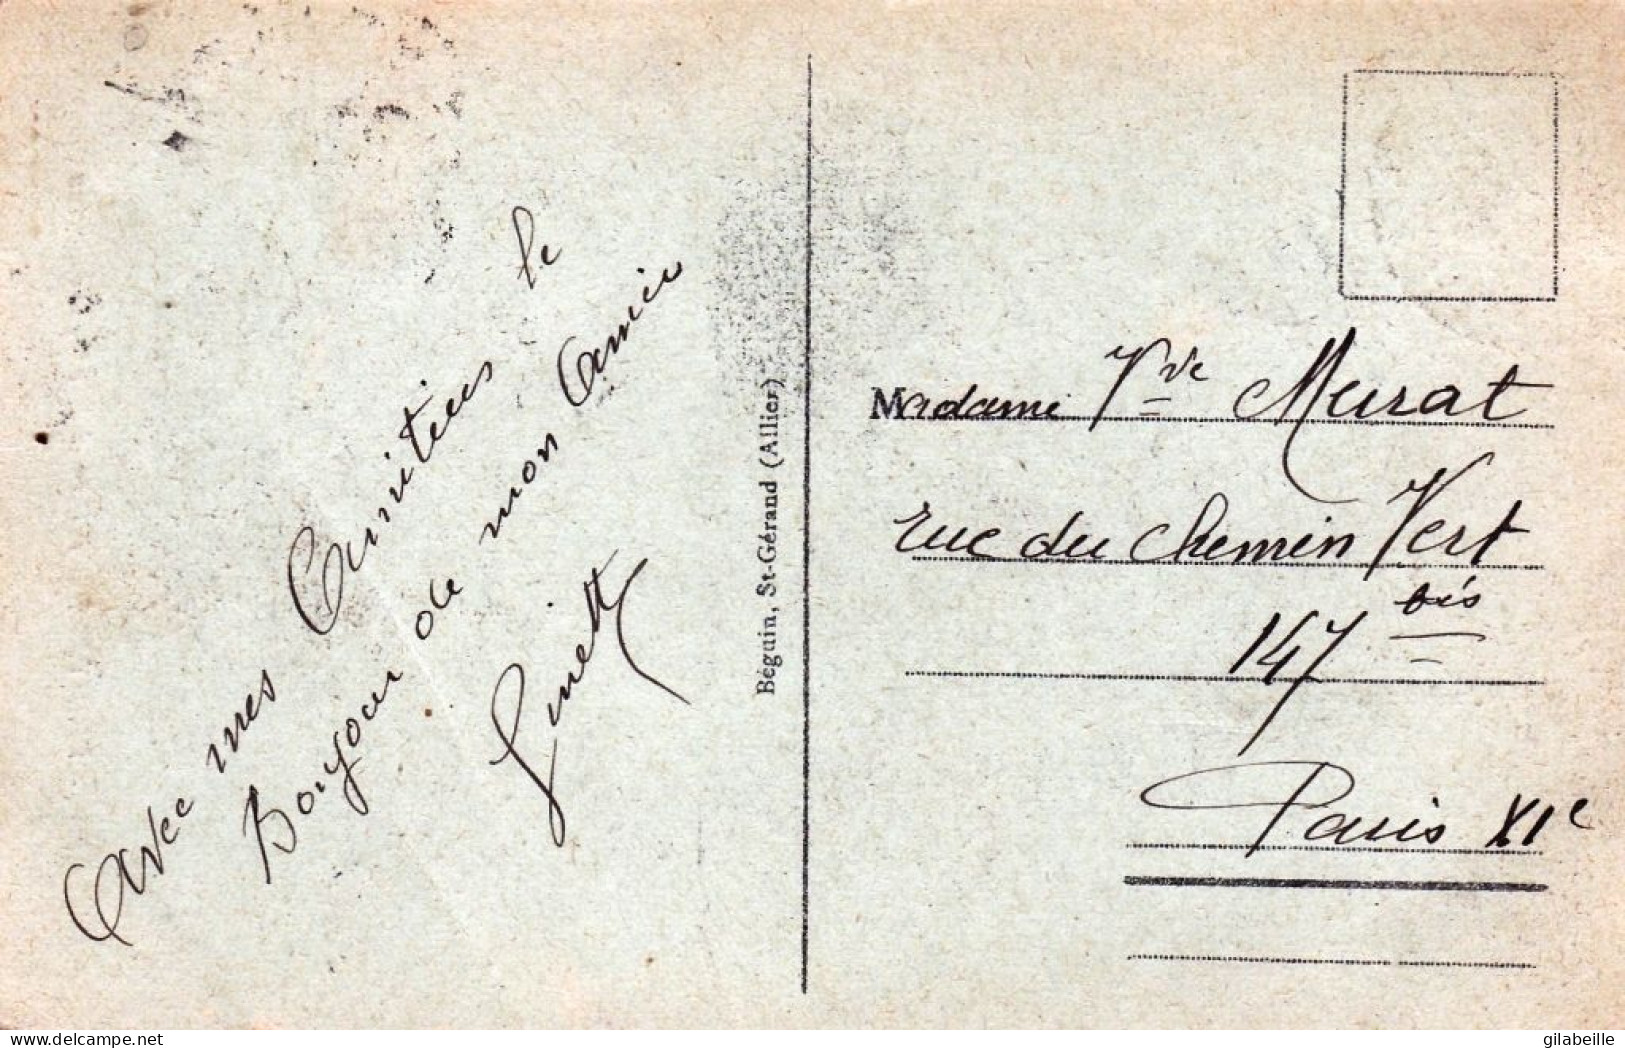 Avec mes Amitiées le
Bonjour de mon Amie
Ginette
Béguin, St-Gérand (Allier)
Madame Vve Murat
rue du Chemin Vert
147 bis
Paris XIe
delcampe.net
gilabeille